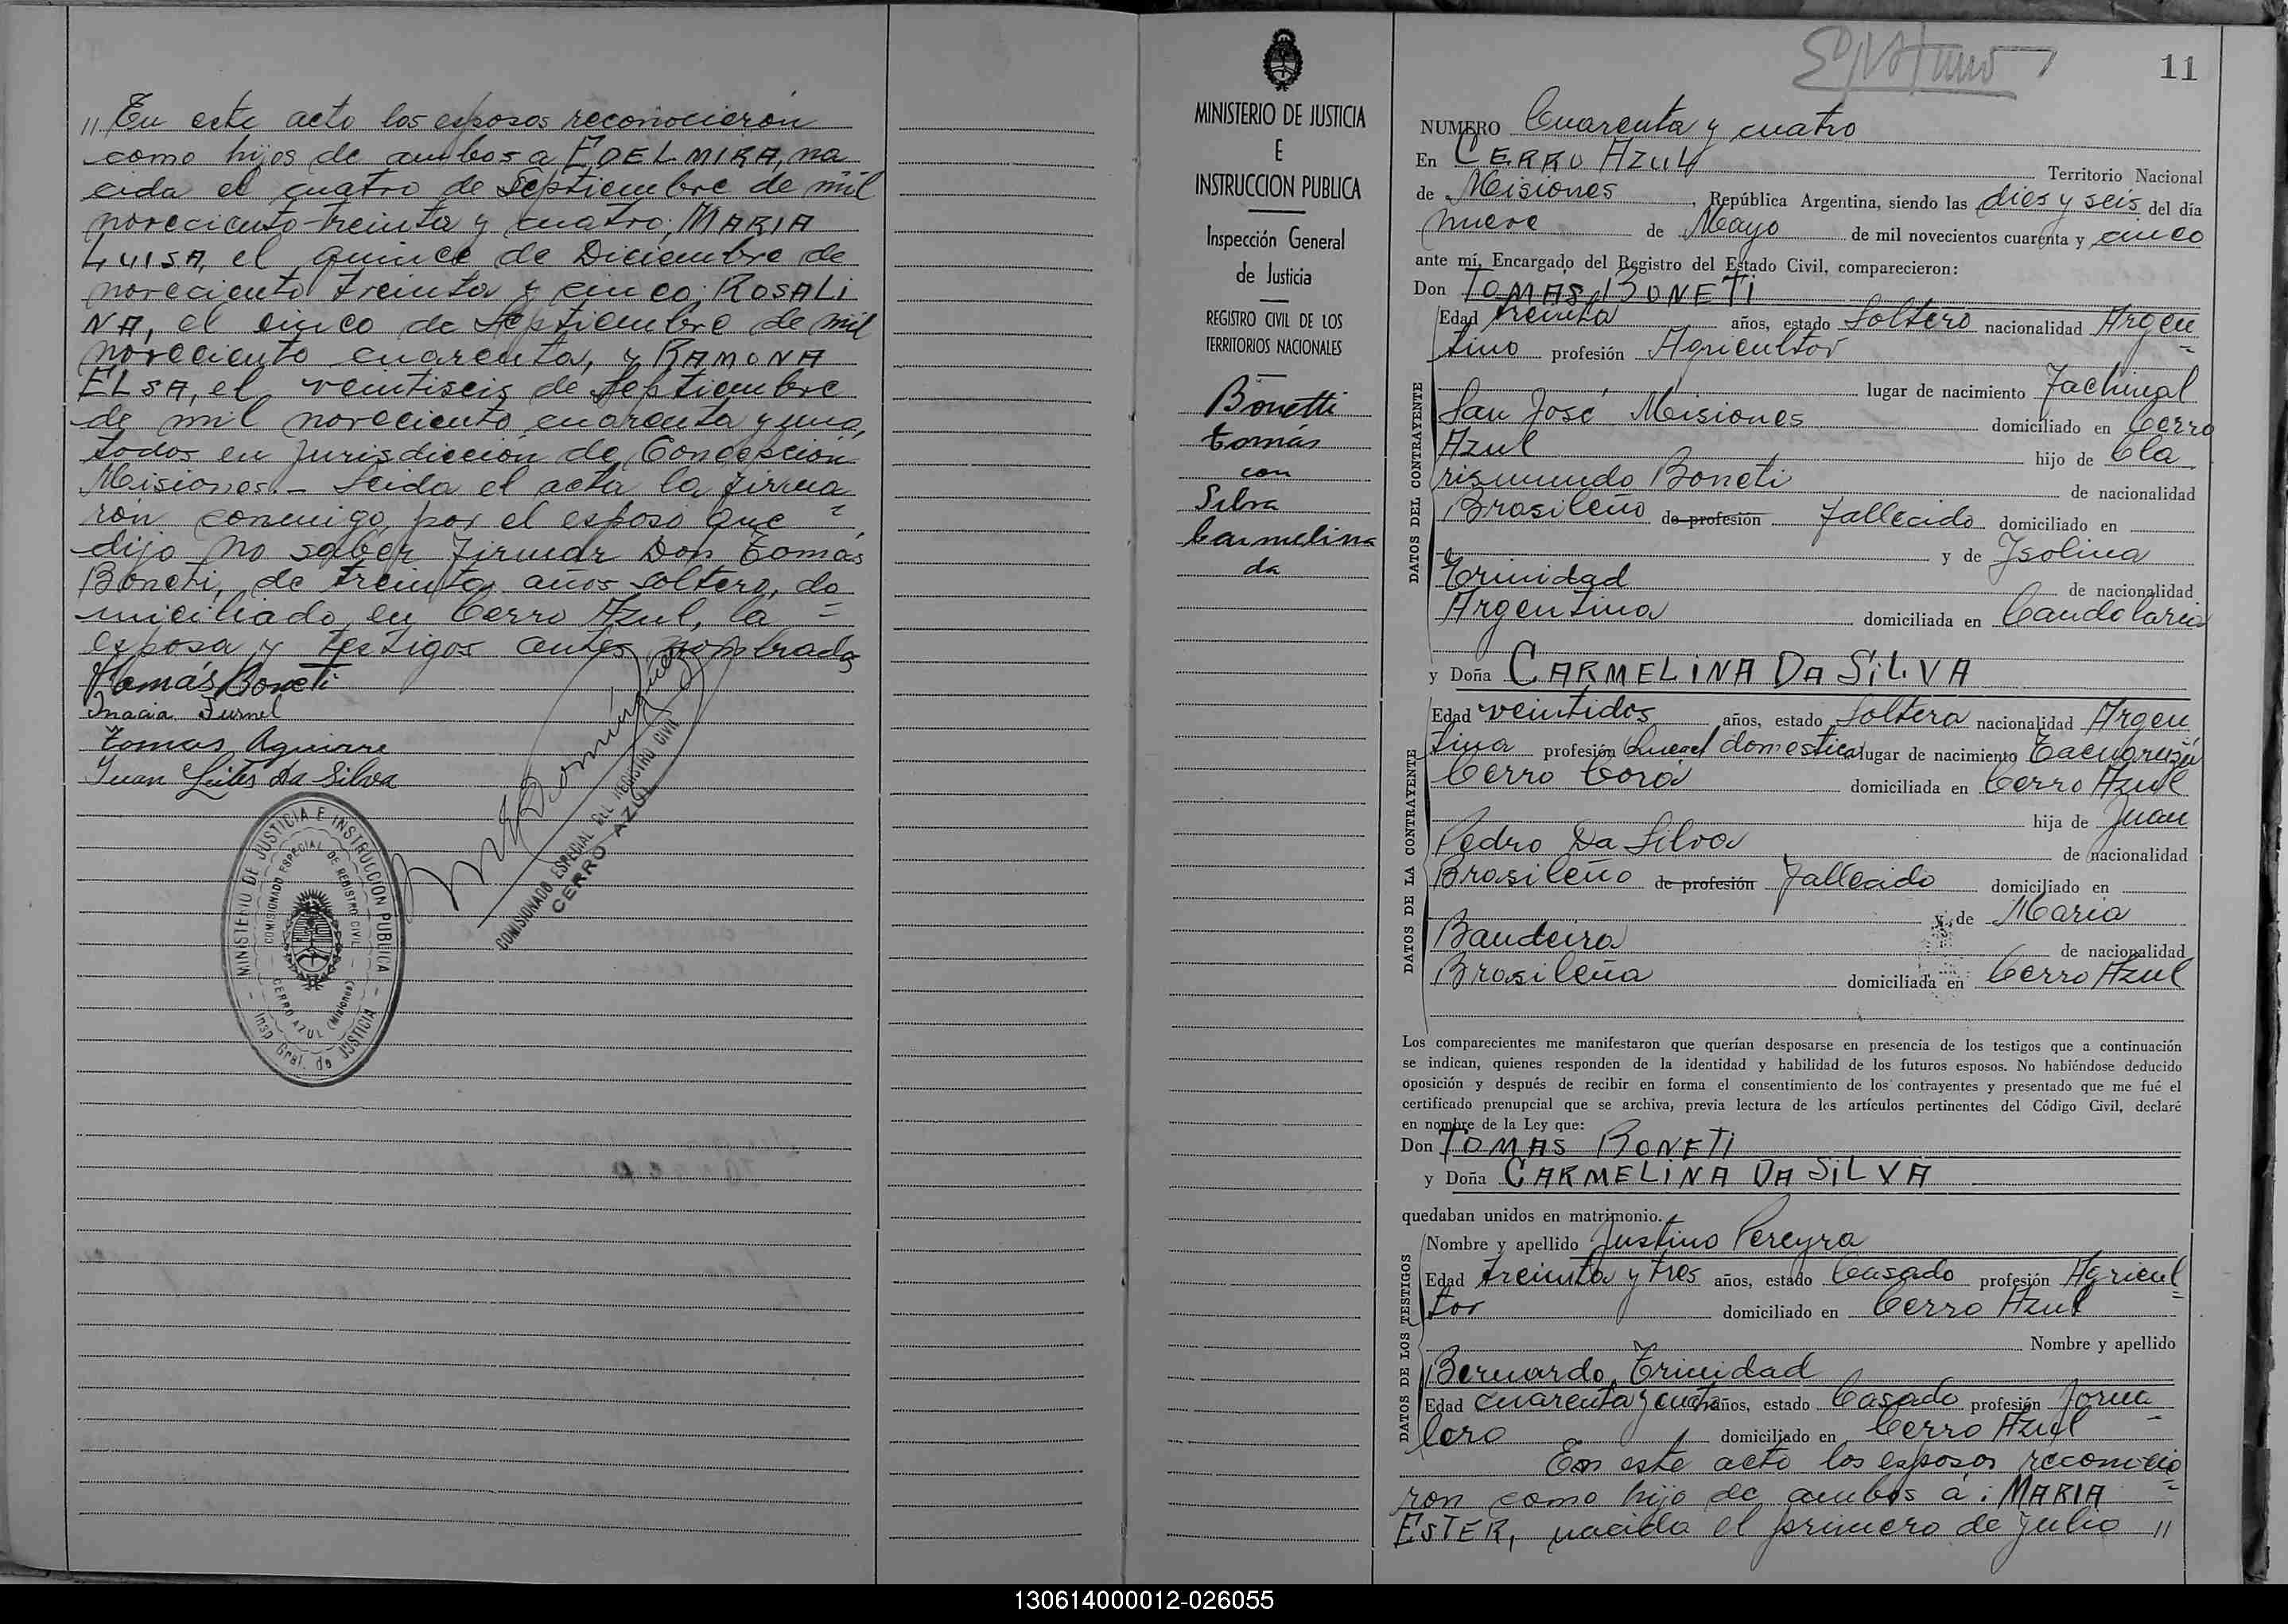 // En este acto los esposos reconocieron
como hijos de ambos a EDELMIRA, na
cida el cuatro de Septiembre de mil
noveciento treinta y cuatro; MARIA
LUISA, el quince de Diciembre de
noveciento treinta y cinco; ROSALI
NA, el cinco de Septiembre de mil
noveciento cuarenta, y RAMONA
ELSA, el veintiseis de Septiembre
de mil noveciento cuarenta y uno,
todos en Jurisdiccion de Concepcion
Misiones.- Leida el acta la firma
ron conmigo, por el esposo que
dijo no saber firmar Don Tomás
Boneti, de treinta años soltero, do
miciliado en Cerro Azul, la =
esposa y testigos antes nombrados
Tomás Boneti
Inacia Surnel
Tomas Aguirre
Juan Leites da Silva
MINISTERIO DE JUSTICIA E INSTRUCCION PUBLICA
Insp Gral. de JUSTICIA
COMISIONADO ESPECIAL DE REGISTRO CIVIL
CERRO AZUL (Misiones)
COMISIONADO ESPECIAL DEL REGISTRO CIVIL
CERRO AZUL
MINISTERIO DE JUSTICIA
E
INSTRUCCION PUBLICA
Inspección General
de Justicia
REGISTRO CIVIL DE LOS
TERRITORIOS NACIONALES
Bonetti
tomás
con
Silva
Carmelina
da
11
NUMERO Cuarenta y cuatro
En CERRO AZUL Territorio Nacional
de Misiones, República Argentina, siendo las dies y seis del día
nueve de Mayo de mil novecientos cuarenta y cinco
ante mí, Encargado del Registro del Estado Civil, comparecieron:
Don TOMAS BONETI
DATOS DEL CONTRAYENTE
Edad treinta años, estado Soltero nacionalidad Argen
tino profesión Agricultor
lugar de nacimiento Jachingal
San José Misiones domiciliado en Cerro
Azul hijo de Cla
rismundo Boneti de nacionalidad
Brasileño de profesión fallecido domiciliado en
y de Isolina
Trinidad de nacionalidad
Argentina domiciliada en Candelaria
y Doña CARMELINA DA SILVA
DATOS DE LA CONTRAYENTE
Edad veintidos años, estado Soltera nacionalidad Argen
tina profesión domestica lugar de nacimiento Tacuaruzú
Cerro Corá domiciliada en Cerro Azul
hija de Juan
Pedro Da Silva de nacionalidad
Brasileño de profesión fallecido domiciliado en
y de Maria
Bandeira de nacionalidad
Brasileña domiciliada en Cerro Azul
Los comparecientes me manifestaron que querían desposarse en presencia de los testigos que a continuación
se indican, quienes responden de la identidad y habilidad de los futuros esposos. No habiéndose deducido
oposición y después de recibir en forma el consentimiento de los contrayentes y presentado que me fué el
certificado prenupcial que se archiva, previa lectura de los artículos pertinentes del Código Civil, declaré
en nombre de la Ley que:
Don TOMAS BONETI
y Doña CARMELINA DA SILVA
quedaban unidos en matrimonio.
DATOS DE LOS TESTIGOS
Nombre y apellido Justino Pereyra
Edad treinta y tres años, estado Casado profesión Agricul
tor domiciliado en Cerro Azul
Nombre y apellido
Bernardo Trinidad
Edad cuarenta y cuatro años, estado Casado profesión Jorna
lero domiciliado en Cerro Azul
En este acto los esposos reconocie
ron como hijo de ambos a: MARIA
ESTER, nacida el primero de Julio //
130614000012-026055